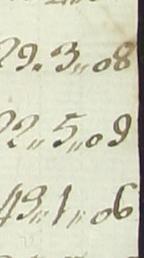 29. 3〃08
22〃5〃09
43〃1〃06